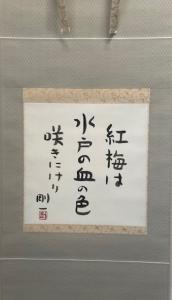 紅梅は
水戸の血の色
咲きにけり
剛一